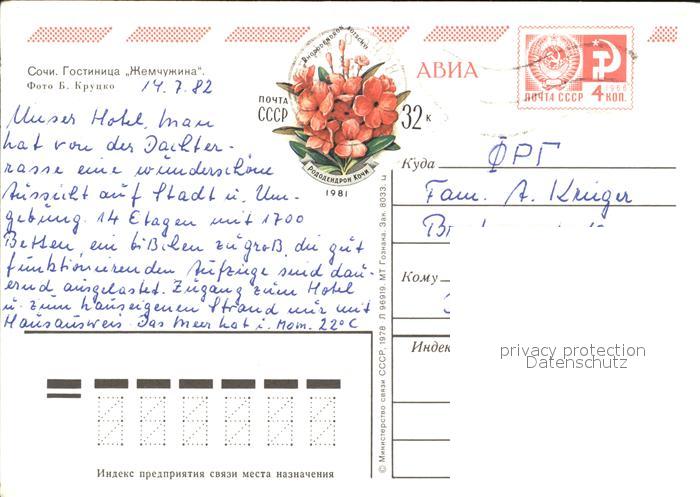 Сочи. Гостиница „Жемчужина".
Фото Б. Круцко 14.7.82
Unser Hotel, man
hat von der Dachter-
rasse eine wunderschöne
Aussicht auf Stadt u. Um-
gebung. 14 Etagen mit 1700
Betten, ein bißchen zu groß, die gut
funktionierenden Aufzüge sind dau-
ernd ausgelastet. Zugang zum Hotel
u. zum hauseigenen Strand nur mit
Hausausweis. Das Meer hat i. Mom. 22°C
ПОЧТА
СССР
32 к
РОДОДЕНДРОН КОЧИ
1981
АВИА
ПОЧТА СССР 4 КОП.
1966
Куда ФРГ
Fam. A. Krüger
Кому
Индек
privacy protection
Datenschutz
© Министерство связи СССР, 1978 Л 96919. МТ Гознака. Зак. 8033. ц
Индекс предприятия связи места назначения